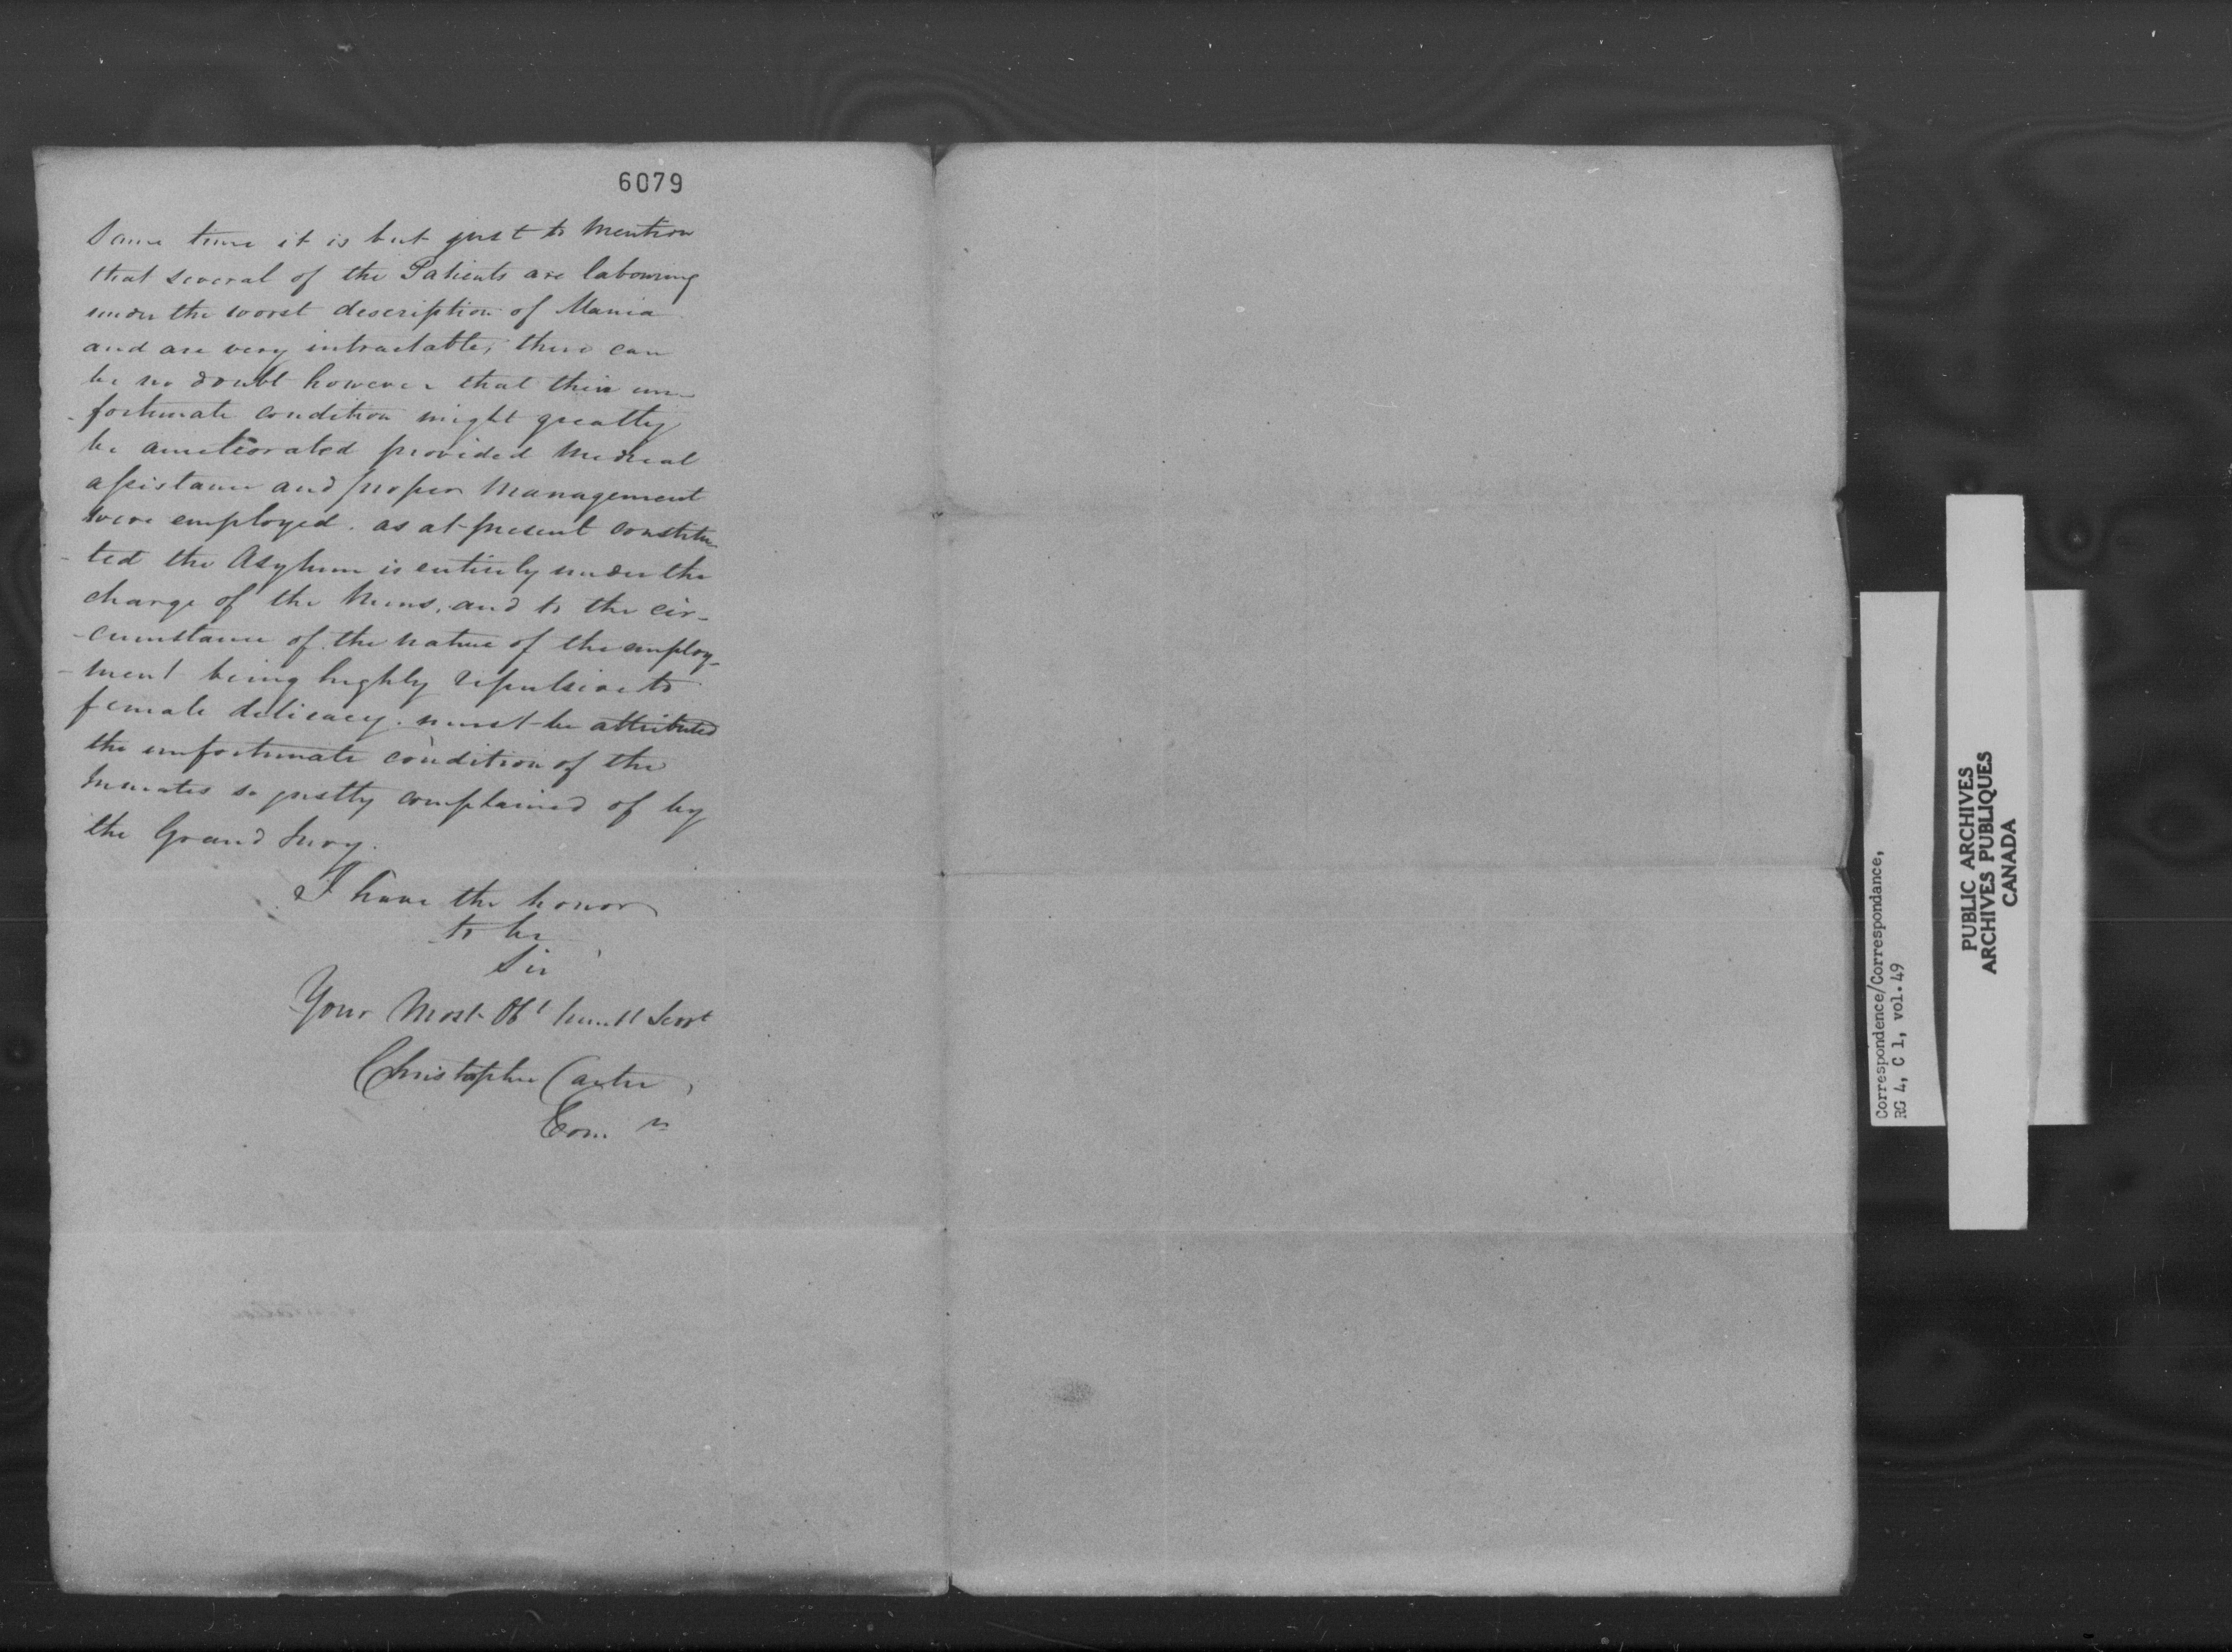 6079
Same time it is but just to Mention
that several of the Patients are labouring
under the worst description of Mania
and are very intractable, there can
be no doubt however that their un-
-fortunate condition might greatly
be ameliorated provided Medical
assistance and proper Management
were employed. as at present constitu-
-ted the Asylum is entirely under the
charge of the Nuns, and to the cir-
-cumstance of the nature of the employ-
-ment being highly repulsive to
female delicacy. must be attributed
the unfortunate condition of the
Inmates so justly complained of by
the Grand Jury.
I have the honor
to be
Sir
Your Most Obt humbl Servt
Christopher Carter,
Com
Correspondence/Correspondance,
RG 4, C 1, vol. 49
PUBLIC ARCHIVES
ARCHIVES PUBLIQUES
CANADA